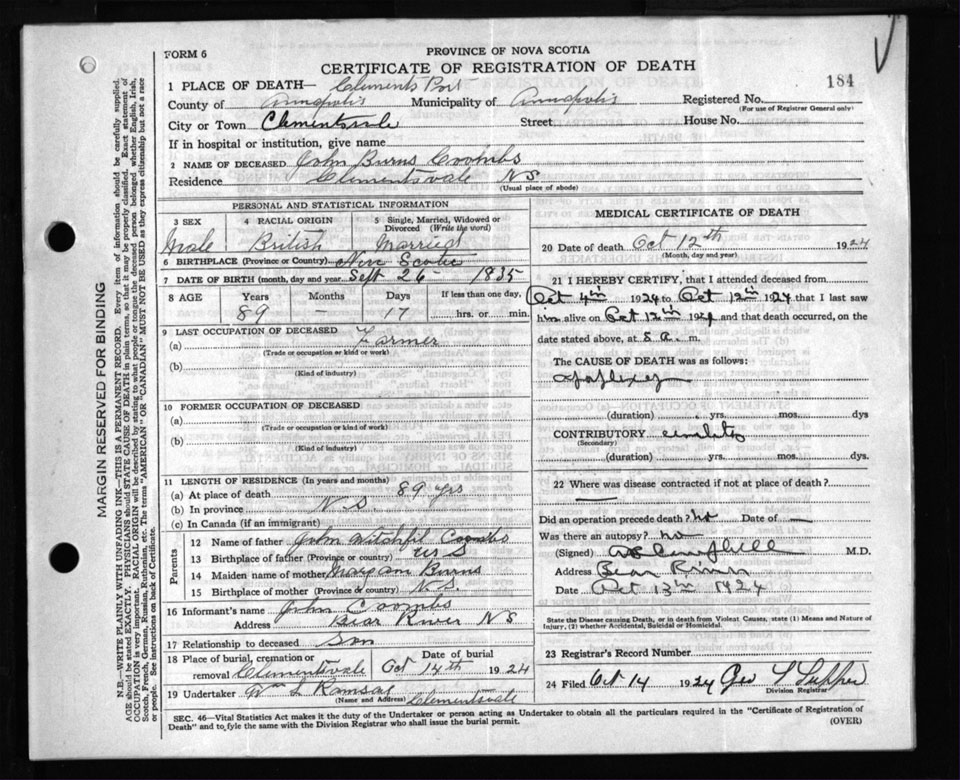 FORM 6
PROVINCE OF NOVA SCOTIA
CERTIFICATE OF REGISTRATION OF DEATH
184
1 PLACE OF DEATH— Clements Port
County of Annapolis Municipality of Annapolis Registered No.
(For use of Registrar General only)
City or Town Clementsvale Street House No.
If in hospital or institution, give name
2 NAME OF DECEASED John Burns Coombs
Residence Clementsvale NS
(Usual place of abode)
PERSONAL AND STATISTICAL INFORMATION
3 SEX 4 RACIAL ORIGIN 5 Single, Married, Widowed or Divorced (Write the word)
Male British Married
6 BIRTHPLACE (Province or Country) Nova Scotia
7 DATE OF BIRTH (month, day and year) Sept 26 - 1835
8 AGE Years Months Days If less than one day,
89 — 17 hrs. or min.
9 LAST OCCUPATION OF DECEASED
(a) Farmer
(Trade or occupation or kind or work)
(b)
(Kind of industry)
10 FORMER OCCUPATION OF DECEASED
(a)
(Trade or occupation or kind of work)
(b)
(Kind of industry)
11 LENGTH OF RESIDENCE (In years and months)
(a) At place of death 89 yrs
(b) In province N.S.
(c) In Canada (if an immigrant)
Parents
12 Name of father John Coombs
13 Birthplace of father (Province or country) US
14 Maiden name of mother Burns
15 Birthplace of mother (Province or country) N.S.
16 Informant's name John Coombs
Address Bear River NS
17 Relationship to deceased Son
18 Place of burial, cremation or removal Clementsvale Date of burial Oct 14th 1924
19 Undertaker Wm L Ramsay
(Name and Address) Clementsvale
MEDICAL CERTIFICATE OF DEATH
20 Date of death Oct 12th 1924
(Month, day and year)
21 I HEREBY CERTIFY, that I attended deceased from
Oct 4th 1924 to Oct 12th 1924 that I last saw
him alive on Oct 12th 1924 and that death occurred, on
the date stated above, at 5 a. m.
The CAUSE OF DEATH was as follows:
Apoplexy
(duration) yrs. mos. dys
CONTRIBUTORY
(Secondary)
(duration) yrs. mos. dys.
22 Where was disease contracted if not at place of death?
Did an operation precede death? no Date of —
Was there an autopsy? no
(Signed) Campbell M.D.
Address Bear River
Date Oct 13th 1924
State the Disease causing Death, or in death from Violent Causes, state (1) Means and Nature of Injury, (2) whether Accidental, Suicidal or Homicidal.
23 Registrar's Record Number
24 Filed Oct 14 1924 Geo
Division Registrar
SEC. 46—Vital Statistics Act makes it the duty of the Undertaker or person acting as Undertaker to obtain all the particulars required in the "Certificate of Registration of
Death" and to fyle the same with the Division Registrar who shall issue the burial permit. (OVER)
MARGIN RESERVED FOR BINDING
N.B.—WRITE PLAINLY WITH UNFADING INK—THIS IS A PERMANENT RECORD. Every item of information should be carefully supplied.
AGE should be stated EXACTLY. PHYSICIANS should STATE CAUSE OF DEATH in plain terms, so that it may be properly classified. Exact statement of
OCCUPATION is very important. RACIAL ORIGIN will be described by stating to what people or tongue the deceased person belonged whether English, Irish,
Scotch, French, German, Russian, Ruthenian, etc. The terms "AMERICAN" OR "CANADIAN" MUST NOT BE USED as they express citizenship but not a race
or people. See instructions on back of Certificate.